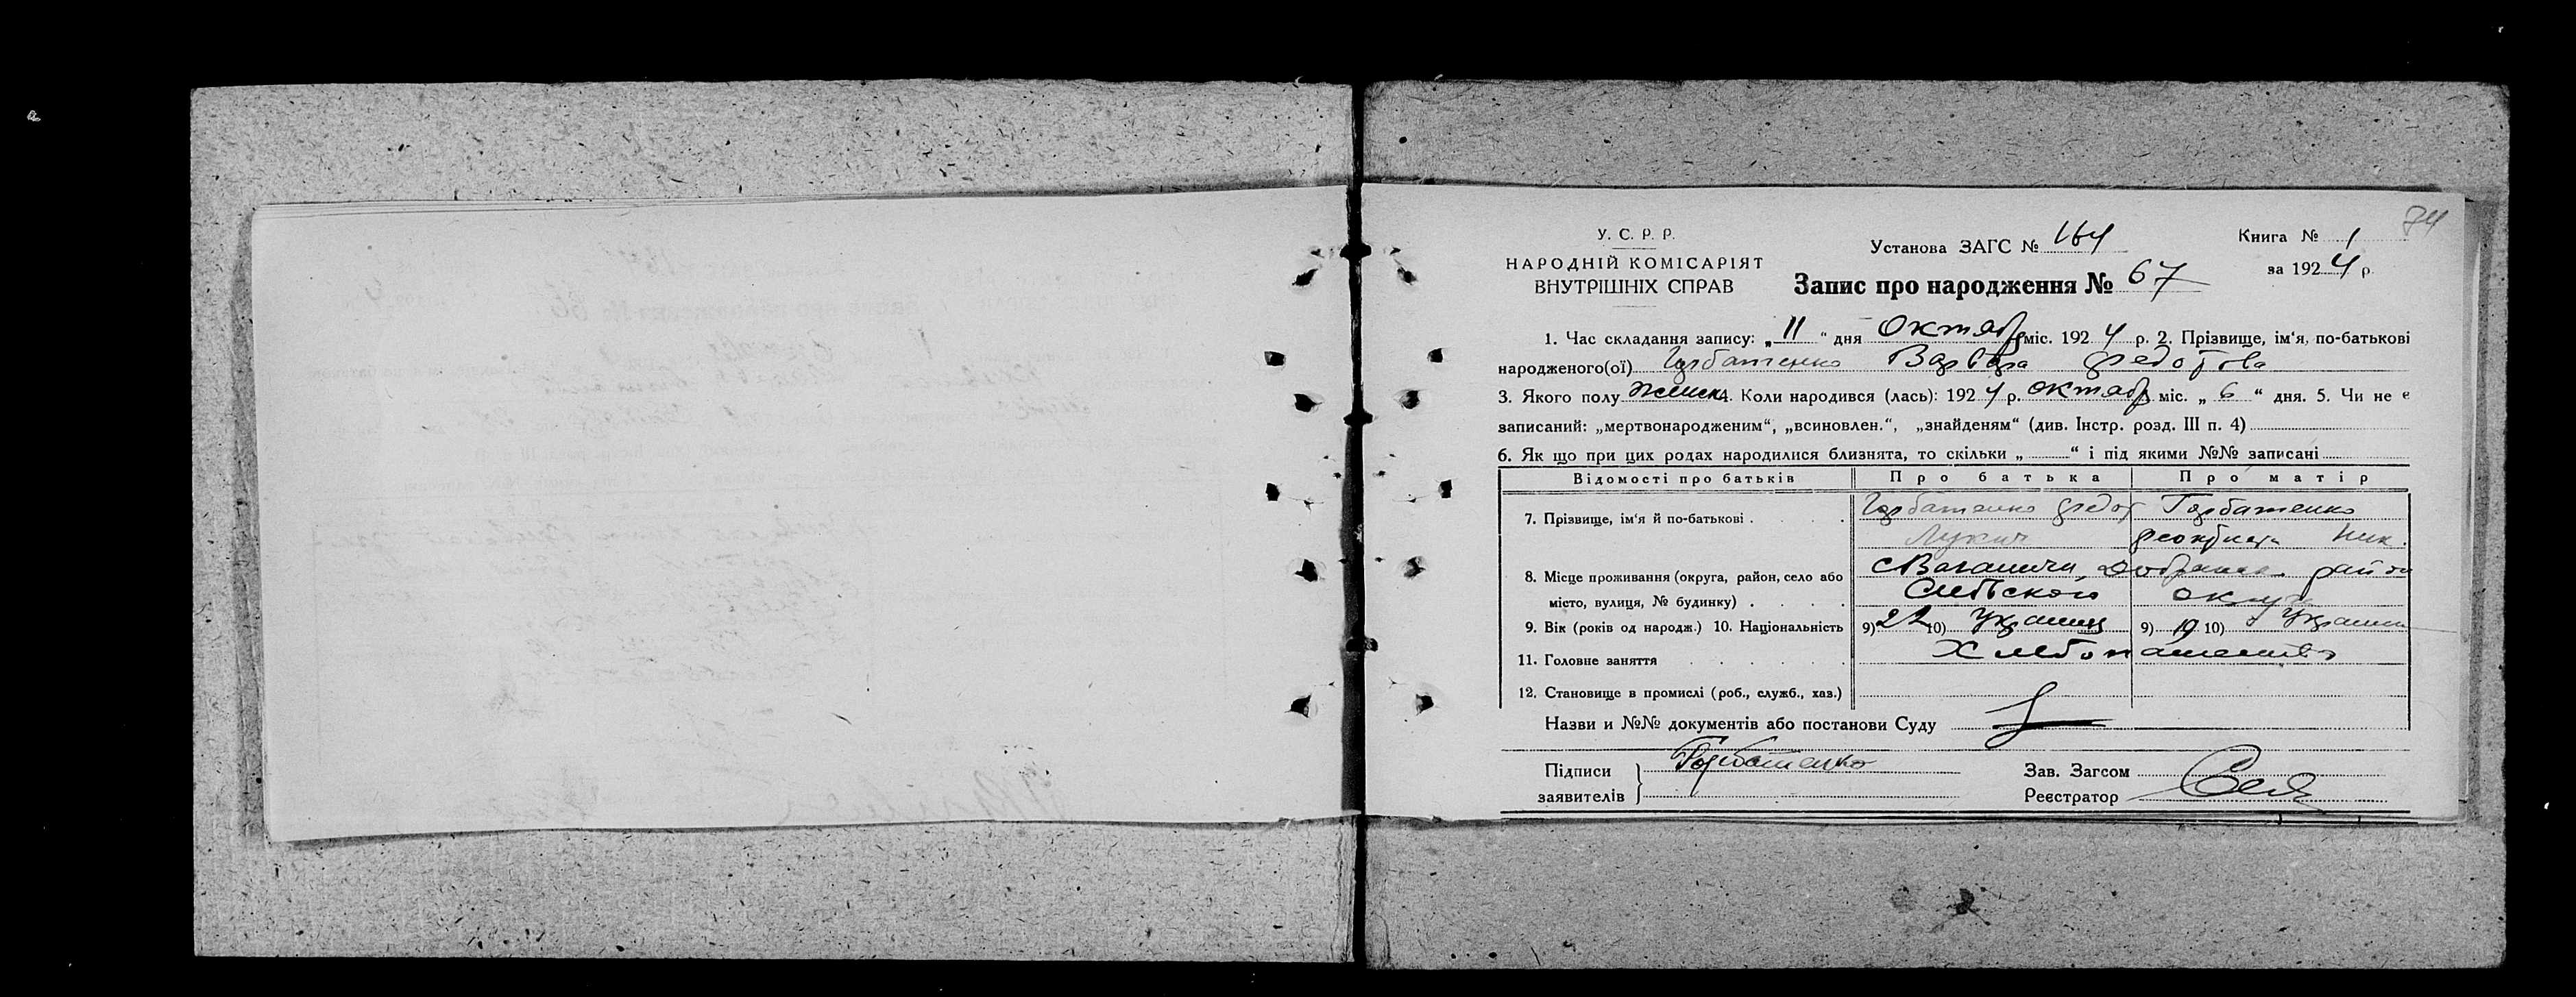 74
У. С. Р. Р.
НАРОДНІЙ КОМІСАРІЯТ
ВНУТРІШНІХ СПРАВ
Установа ЗАГС № 164
Книга № 1
за 1924 р.
Запис про народження № 67
1. Час складання запису: „11“ дня Октябр міс. 1924 р. 2. Прізвище, ім‘я, по-батькові
народженого(ої) Горбатенко Варвара Федотова
3. Якого полу женск 4. Коли народився (лась): 1924 р. октябр міс. „6“ дня. 5. Чи не є
записаний: „мертвонародженим“, „всиновлен.“, „знайденям“ (див. Інстр. розд. III п. 4)
6. Як що при цих родах народилися близнята, то скільки „ “ і під якими №№ записані
Відомості про батьків Про батька Про матір
7. Прізвище, ім‘я й по-батькові Горбатенко Федот Горбатенко
Лукич Ник.
8. Місце проживання (округа, район, село або с Ваганичи, район
місто, вулиця, № будинку)
9. Вік (років од народж.) 10. Національність 9) 22 10) Украинец 9) 19 10)
11. Головне заняття
12. Становище в промислі (роб., служб., хаз.)
Назви и №№ документів або постанови Суду
Підписи Горбатенко
заявителів
Зав. Загсом
Реєстратор